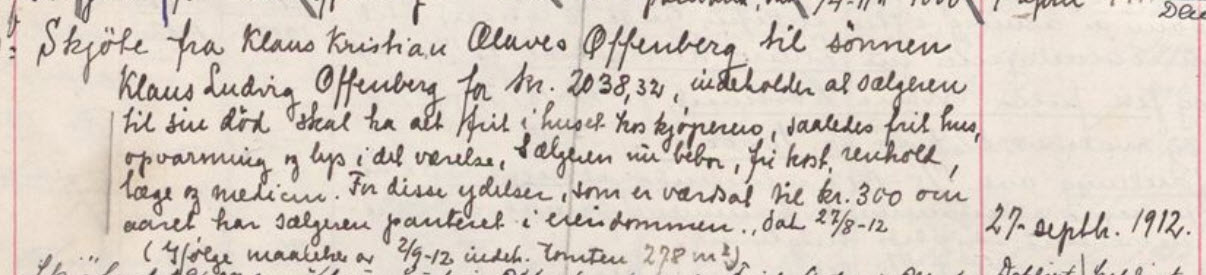 Skjöte fra Klaus Kristian Olaves Offenberg til sönnen
Klaus Ludvig Offenberg for kr. 2038,32, indeholder at sælgeren
til sin död skal ha alt frit i huset hos kjöperen, saaledes frit hus,
opvarmning og lys i det værelse, Sælgeren nu bebor, fri kost, renhold,
læge og medicin. For disse ydelser, som er værdsat til kr. 300 om
aaret har sælgeren panteret i eiendommen., dat 27/8-12
27 septbr. 1912.
(Ifölge maalebr av 2/9-12 indeh. tomten 278 m²).